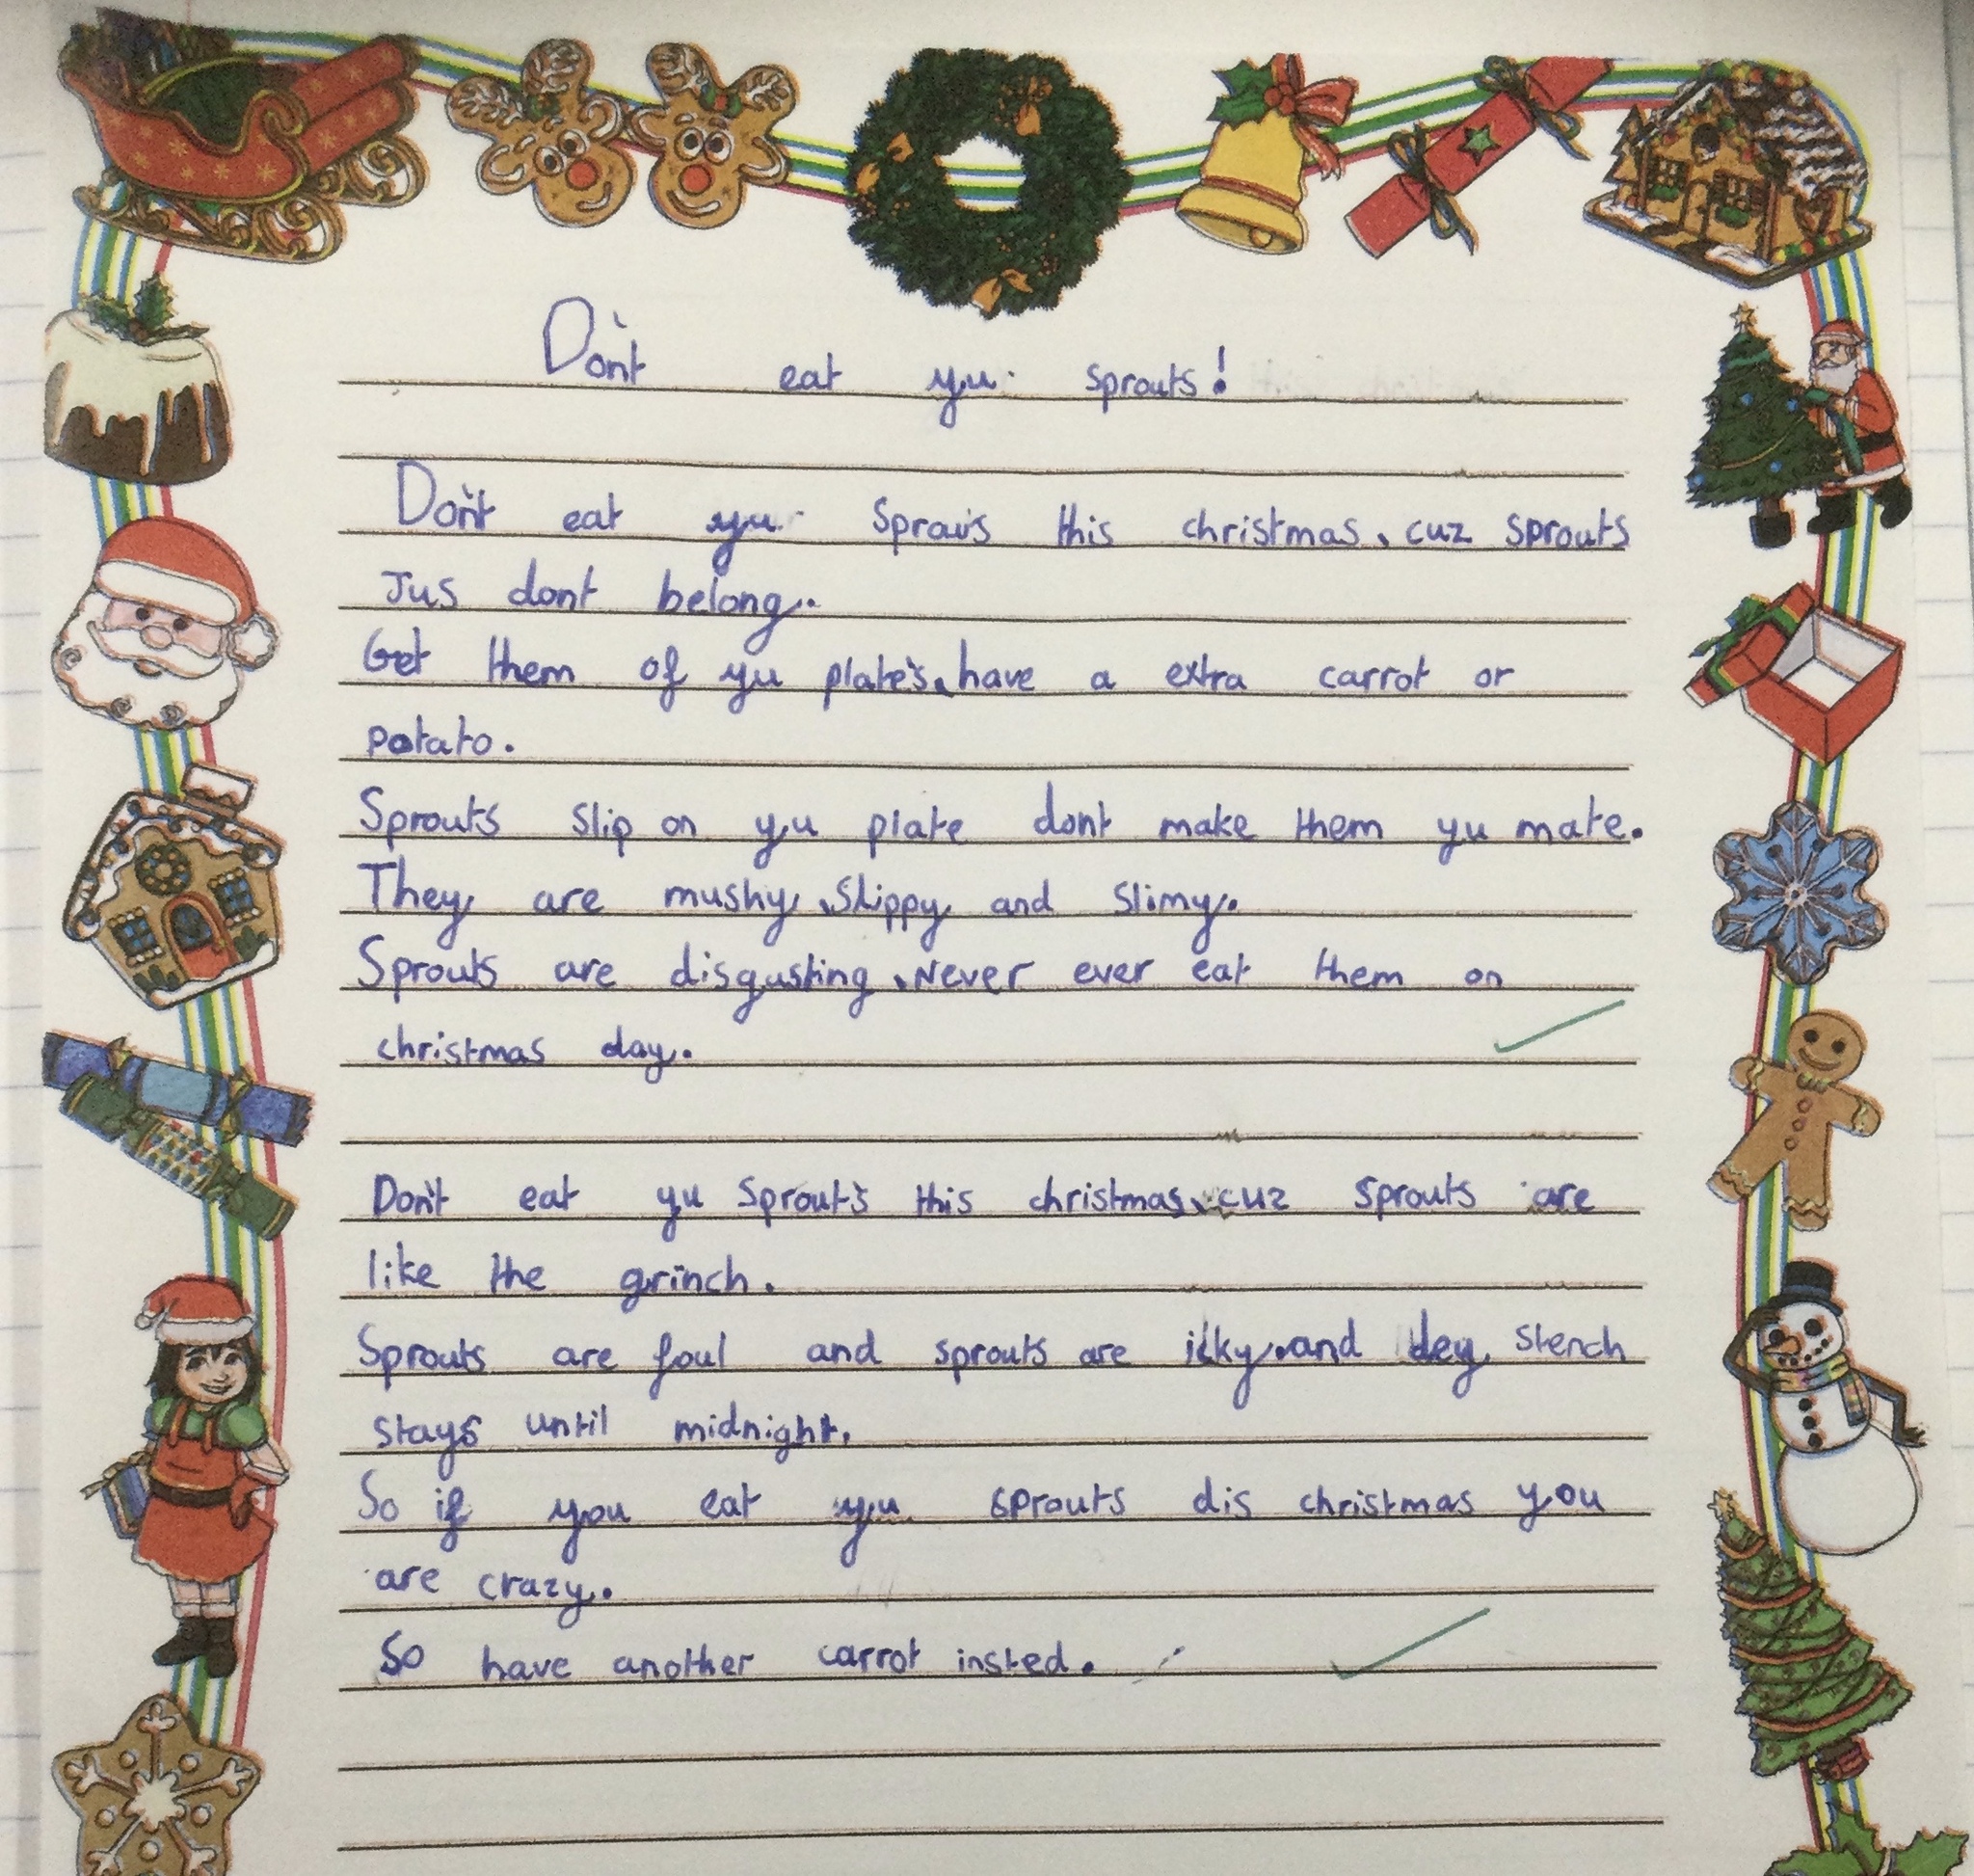 Don't eat yu sprouts!
Don't eat yu Sprouts this christmas, cuz sprouts
Jus dont belong.
Get them of yu plate's, have a extra carrot or
potato.
Sprouts slip on yu plate dont make them yu mate.
They are mushy, Slippy and slimy.
Sprouts are disgusting, Never ever eat them on
christmas day.
Don't eat yu Sprout's this christmas, cuz sprouts are
like the grinch.
Sprouts are foul and sprouts are icky.and dey stench
stays until midnight.
So if you eat yu sprouts dis christmas you
are crazy.
So have another carrot insted.